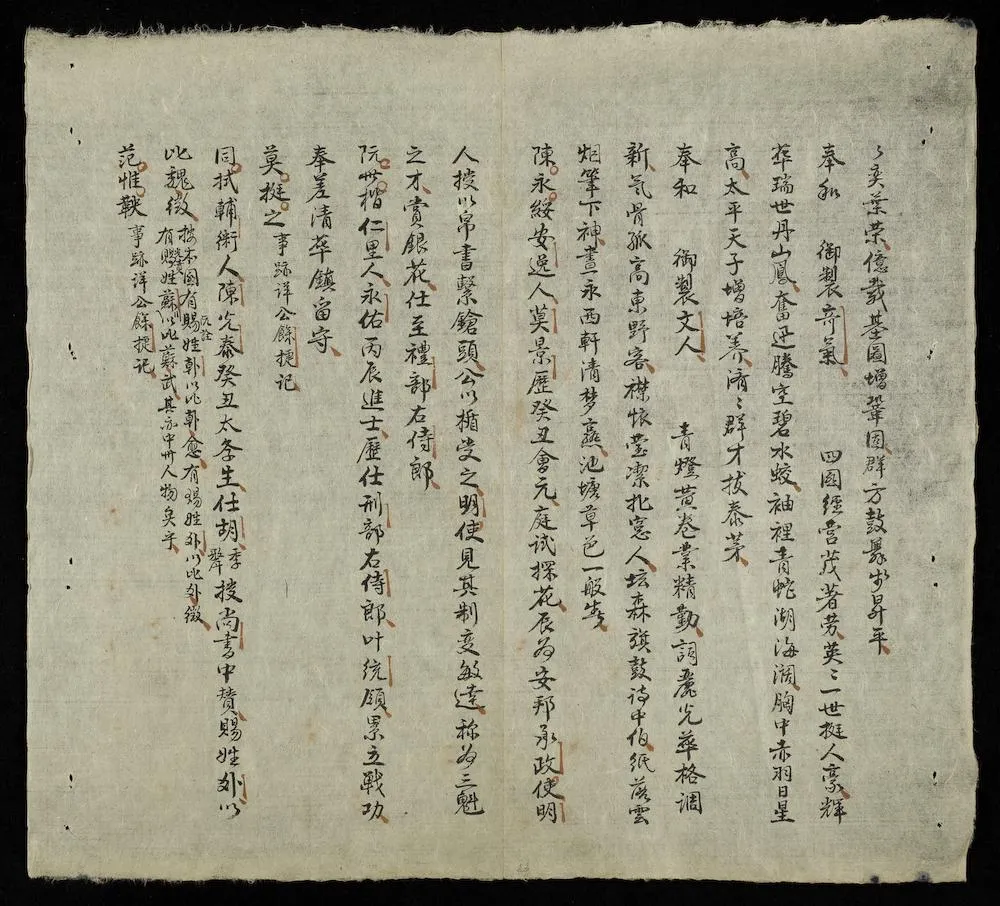 〻奕葉荣億載基圖增鞏固群方鼓舞歩昇平
奉和 御製竒氣 四國經营茂著劳英〻一世挺人豪輝
華瑞世丹山鳳奮迅騰空碧水蛟袖裡青蛇湖海濶胸中赤羽日星
高太平天子增培养濟〻群才拔泰茅
奉和 御製文人 青燈黄卷業精勤詞麗光華格調
新氣骨孤高東野客襟怀莹潔北窓人坛森旗鼓诗中伯紙落雲
烟筆下神晝永西軒清梦熹池塘草色一般春
陳永綏安逸人莫景歷癸丑會元庭试探花辰为安邦承政使明
人授以帛書繫鎗頭公以楯受之明使見其制变敏達称为三魁
之才賞銀花仕至禮部右侍郎
阮世楷仁里人永佑丙辰進士歷仕刑部右侍郎叶統領累立戰功
奉差清華鎮留守
莫挺之事跡详公餘捷记
同拭輔衛人陳光泰癸丑太孝生仕胡季犛授尚書中賛賜姓外以
比魏徵按本國有賜姓韓以比韓愈有赐姓外以比外徵
有賜姓蘇以比蘇武其亦中州人物矣乎
范惟𫖔事跡详公餘捷记